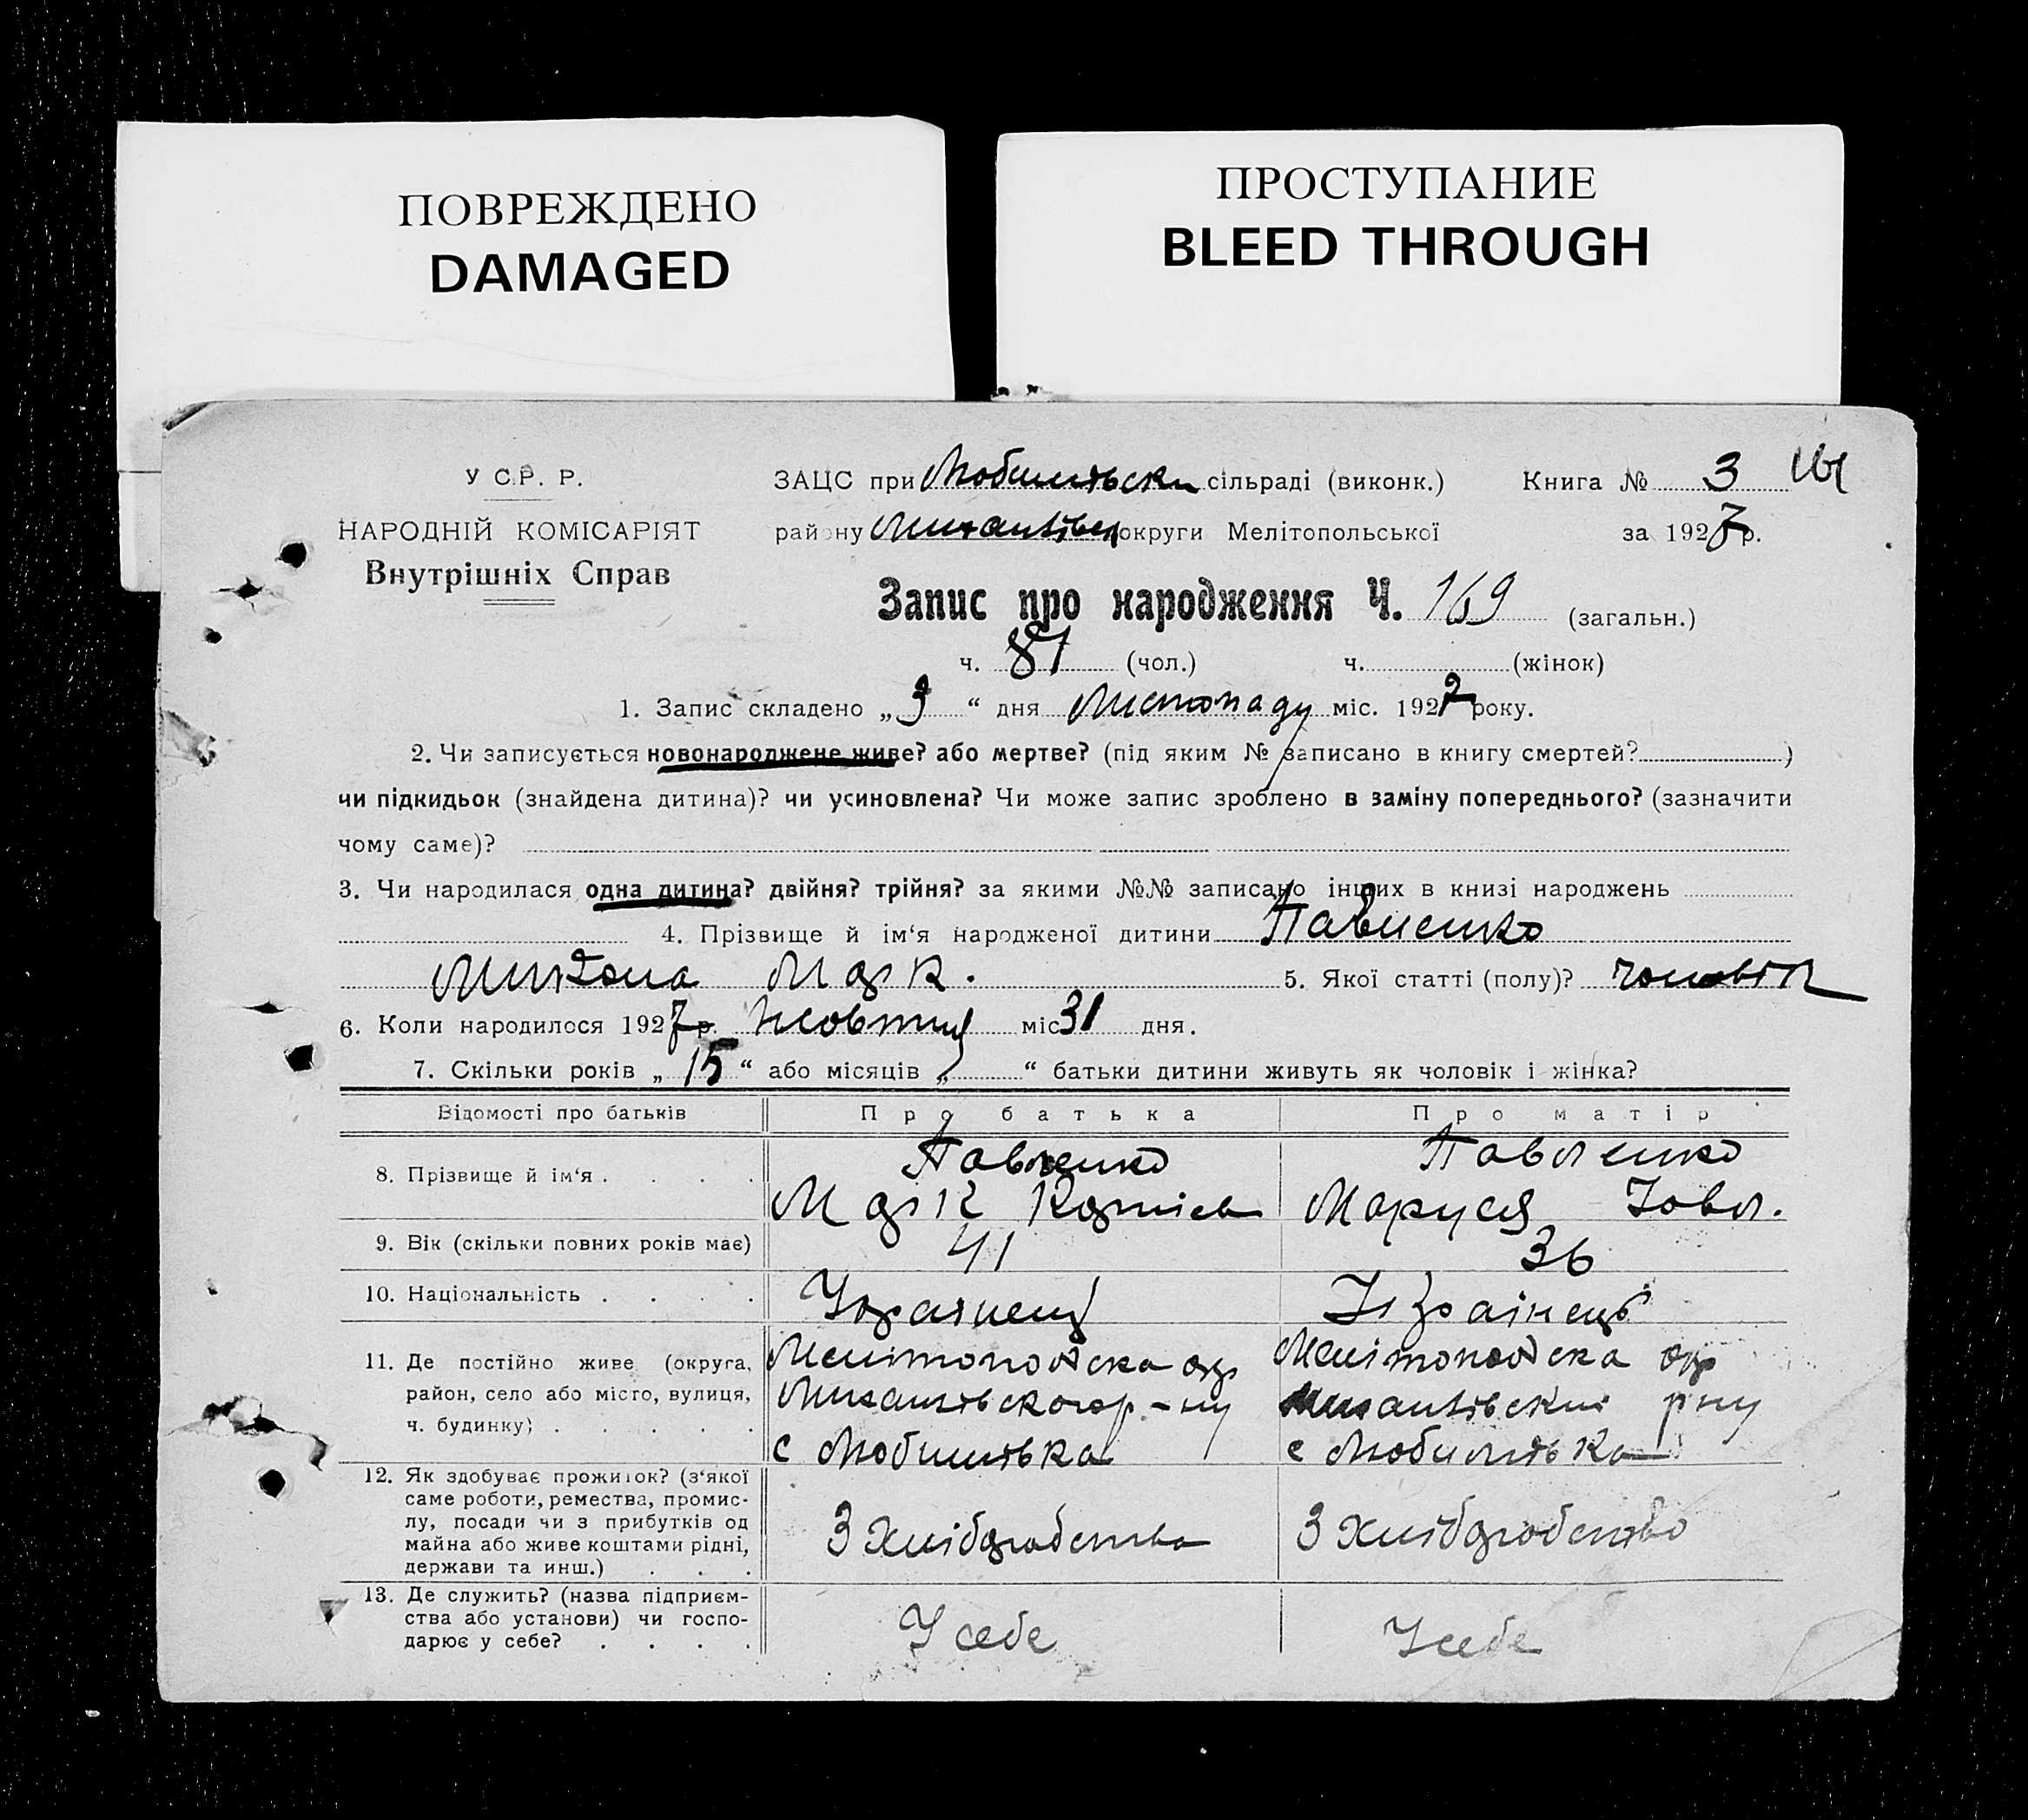 ПОВРЕЖДЕНО
DAMAGED
ПРОСТУПАНИЕ
BLEED THROUGH
У С.Р. Р.
НАРОДНІЙ КОМІСАРІЯТ
Внутрішніх Справ
ЗАЦС при Любимівськ сільраді (виконк.) Книга № 3
району округи Мелітопольської за 1927 р.
Запис про народження Ч. 169 (загальн.)
ч. 87 (чол.) ч. (жінок)
1. Запис складено „3“ дня Листопаду міс. 1927 року.
2. Чи записується новонароджене живе? або мертве? (під яким № записано в книгу смертей? )
чи підкидьок (знайдена дитина)? чи усиновлена? Чи може запис зроблено в заміну попереднього? (зазначити
чому саме)?
3. Чи народилася одна дитина? двійня? трійня? за якими №№ записано інших в книзі народжень
4. Прізвище й ім‘я народженої дитини Павленко
Микола Марк. 5. Якої статті (полу)? чоловік
6. Коли народилося 1927 р. Жовтня міс 31 дня.
7. Скільки років „15“ або місяців „ “ батьки дитини живуть як чоловік і жінка?
Відомості про батьків Про батька Про матір
8. Прізвище й ім‘я . . . . Павленко Павленко
Марк Маруся Іовл.
9. Вік (скільки повних років має) 41 36
10. Національність . . . . Українець
11. Де постійно живе (округа, Мелітопольска окр Мелітопольска окр
район, село або місто, вулиця, р-ну р-ну
ч. будинку) . . . . . с Любимівка с Любимівка
12. Як здобуває прожиток? (з‘якої
саме роботи, ремества, промис-
лу, посади чи з прибутків од
майна або живе коштами рідні,
держави та инш.) . . . З хліборобства З хліборобства
13. Де служить? (назва підприєм-
ства або установи) чи госпо-
дарює у себе? . . . . У себе У себе